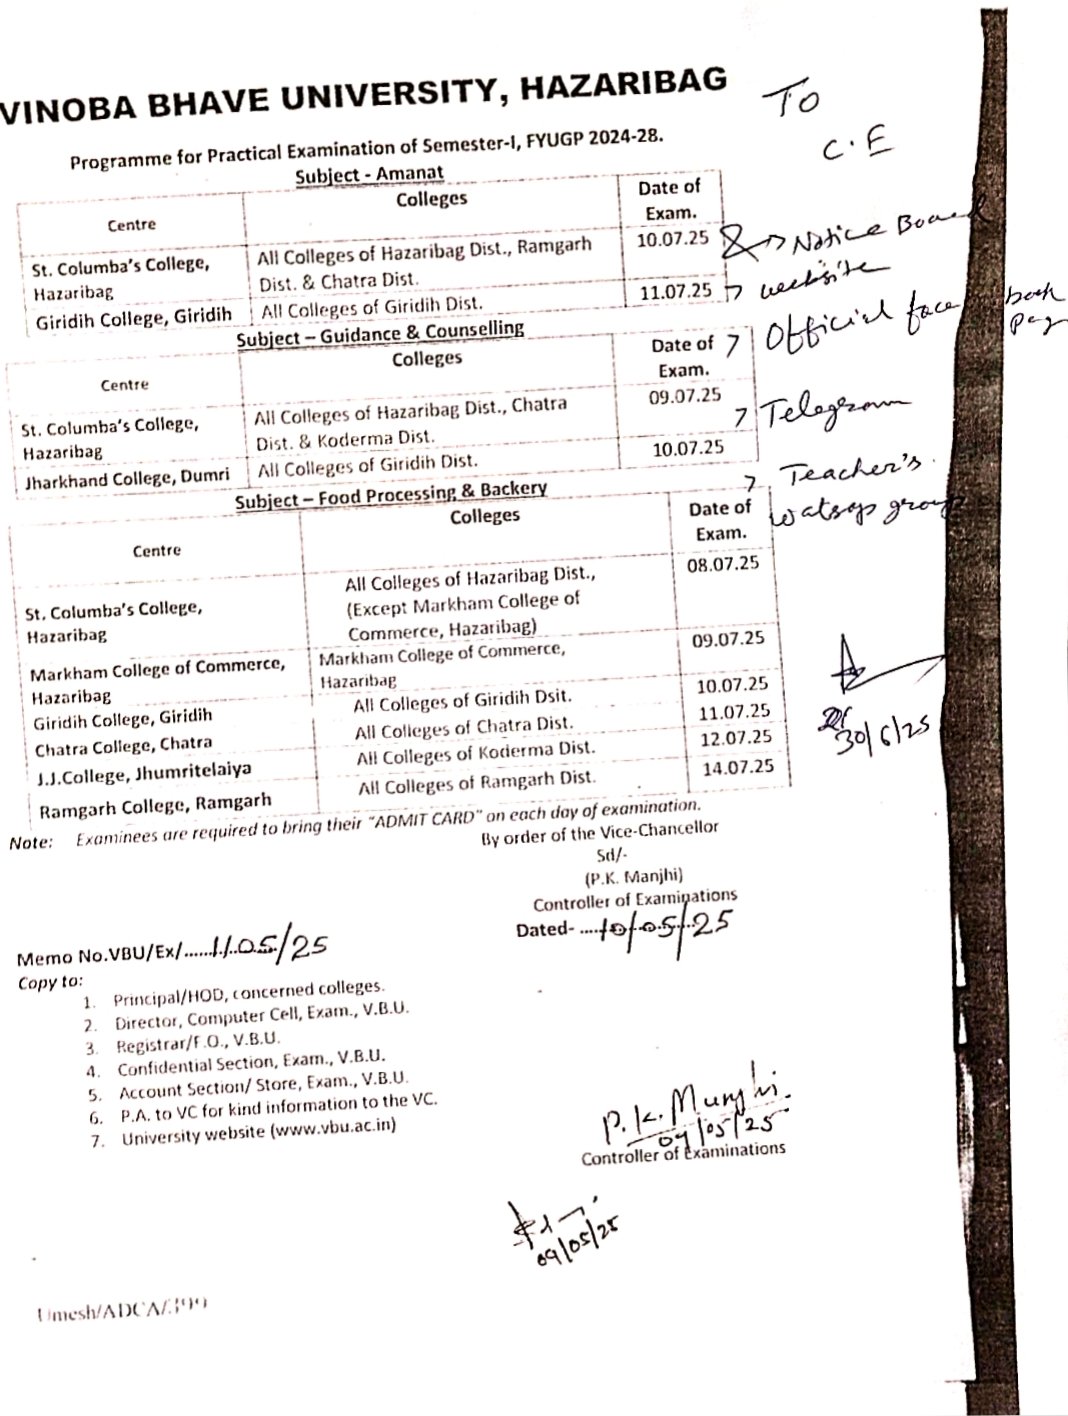 VINOBA BHAVE UNIVERSITY, HAZARIBAG
To
C.E
Programme for Practical Examination of Semester-I, FYUGP 2024-28.
Subject - Amanat
Centre Colleges Date of Exam.
St. Columba's College, Hazaribag All Colleges of Hazaribag Dist., Ramgarh Dist. & Chatra Dist. 10.07.25
Giridih College, Giridih All Colleges of Giridih Dist. 11.07.25
Notice Board
website
Official face book page
Telegram
Teacher's
watsap group
Subject – Guidance & Counselling
Centre Colleges Date of Exam.
St. Columba's College, Hazaribag All Colleges of Hazaribag Dist., Chatra Dist. & Koderma Dist. 09.07.25
Jharkhand College, Dumri All Colleges of Giridih Dist. 10.07.25
Subject – Food Processing & Backery
Centre Colleges Date of Exam.
St. Columba's College, Hazaribag All Colleges of Hazaribag Dist., (Except Markham College of Commerce, Hazaribag) 08.07.25
Markham College of Commerce, Hazaribag Markham College of Commerce, Hazaribag 09.07.25
Giridih College, Giridih All Colleges of Giridih Dsit. 10.07.25
Chatra College, Chatra All Colleges of Chatra Dist. 11.07.25
J.J.College, Jhumritelaiya All Colleges of Koderma Dist. 12.07.25
Ramgarh College, Ramgarh All Colleges of Ramgarh Dist. 14.07.25
30/6/25
Note: Examinees are required to bring their "ADMIT CARD" on each day of examination.
By order of the Vice-Chancellor
Sd/-
(P.K. Manjhi)
Controller of Examinations
Dated- .....10/05/25
Memo No.VBU/Ex/......1105/25
Copy to:
1. Principal/HOD, concerned colleges.
2. Director, Computer Cell, Exam., V.B.U.
3. Registrar/F.O., V.B.U.
4. Confidential Section, Exam., V.B.U.
5. Account Section/ Store, Exam., V.B.U.
6. P.A. to VC for kind information to the VC.
7. University website (www.vbu.ac.in)
P.K. Manjhi.
09/05/25
Controller of Examinations
09/05/25
Umesh/ADCA/399